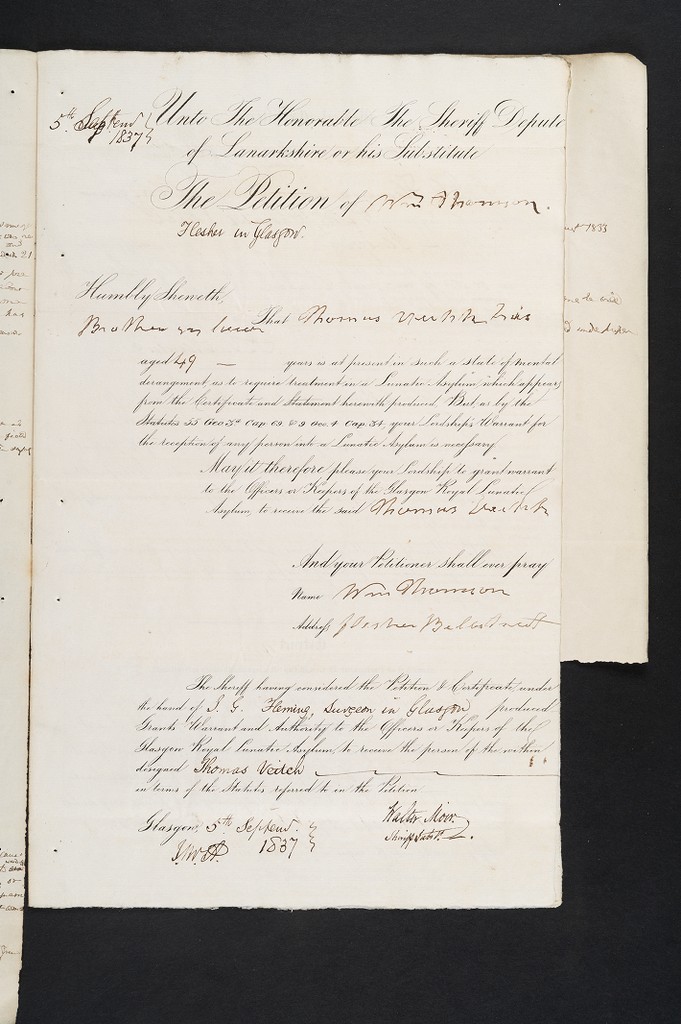 5th Septemr 1837
Unto The Honorable The Sheriff Depute
of Lanarkshire or his Substitute
The Petition of Wm Thomson.
Flesher in Glasgow.
Humbly Sheweth,
That Thomas Veitch his
Brother in law
aged 49 — years is at present in such a state of mental
derangement, as to require treatment in a Lunatic Asylum, which appears
from the Certificate and Statement herewith produced, But as by the
Statutes 55 Geo 3d Cap 69 & 9 Geo. 4 Cap 34, your Lordship's Warrant for
the reception of any person into a Lunatic Asylum is necessary.
May it therefore please your Lordship to grant warrant
to the Officers or Keepers of the Glasgow Royal Lunatic
Asylum, to receive the said Thomas Veitch
And your Petitioner shall ever pray
Name Wm Thomson
Address Flesher
The Sheriff having considered the Petition & Certificate, under
the hand of J. G. Fleming, Surgeon in Glasgow produced
Grants Warrant and Authority to the Officers or Keepers of the
Glasgow Royal Lunatic Asylum, to receive the person of the within
designed Thomas Veitch
in terms of the Statutes referred to in the Petition
Glasgow, 5th Septemr.
1837
Walter Moir
Sheriff Subst.
1833